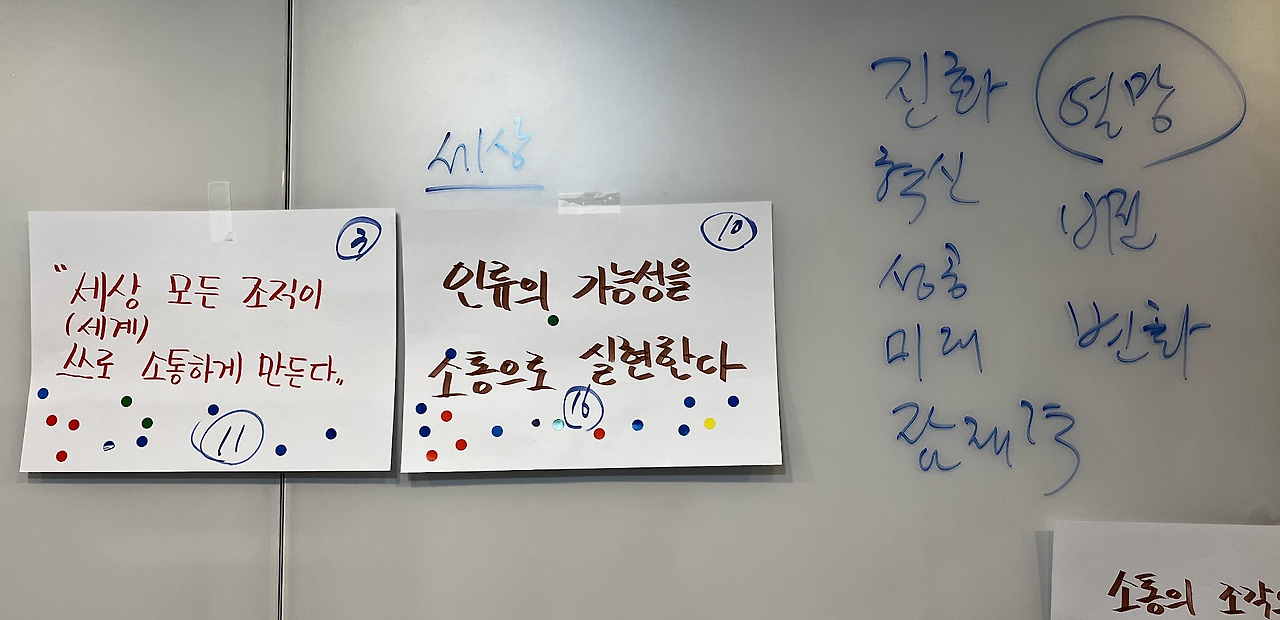 세상
3
"세상 모든 조직이
(세계)
쓰로 소통하게 만든다„
11
10
인류의 가능성을
소통으로 실현한다
16
진화
혁신
성공
미래
잠재력
열망
비전
변화
소통의 조각